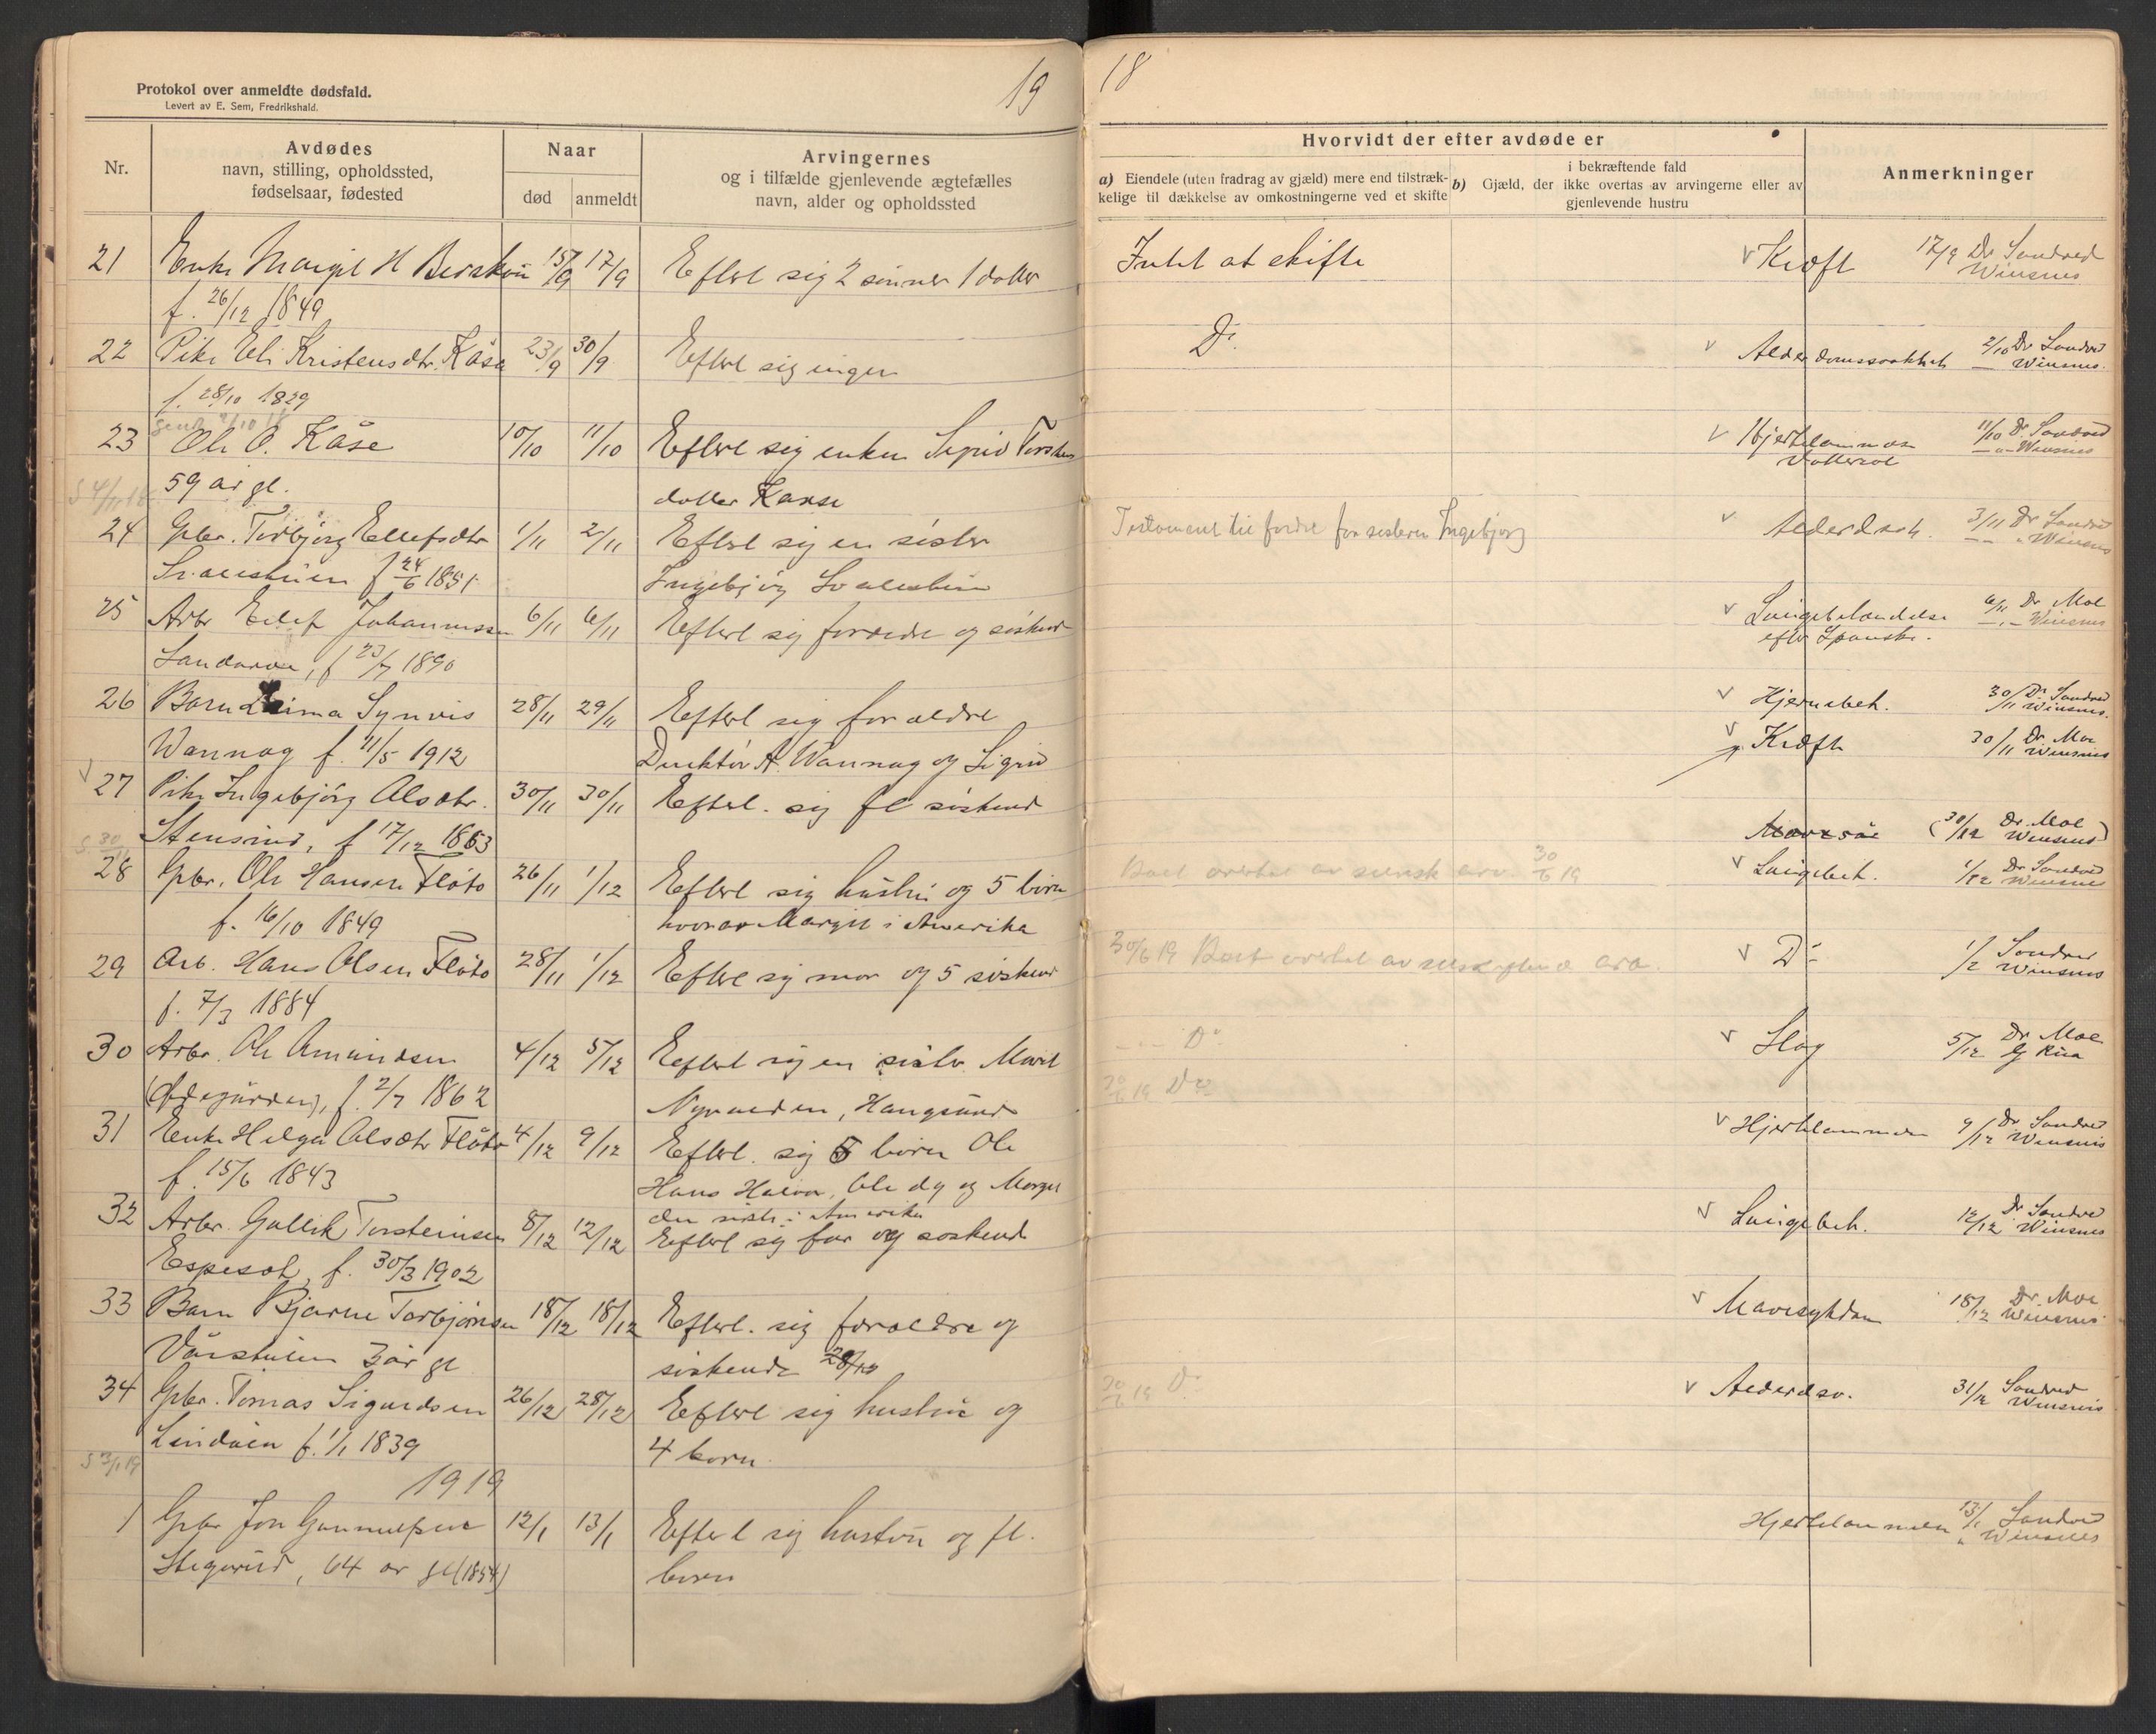 Protokol over anmeldte dødsfald.
Levert av E. Sem, Fredrikshald.
19
Nr.
Avdødes
navn, stilling, opholdssted,
fødselsaar, fødested
Naar
død
anmeldt
Arvingernes
og i tilfælde gjenlevende ægtefælles
navn, alder og opholdssted
21 Enke Margit H 15/9 17/9 Efterl sig 2 sønner 1 datter
f. 26/12 1849
22 Pike Eli Kristensdtr. Kåsa 23/9 30/9 Efterl sig ingen
f. 28/10 1829
23 Ole O. Kåse 10/10 11/10 Efterl sig enken
59 år gl. datter Kaase
24 Gbr. Torbjørg Ellefsdtr 1/11 2/11 Efterl sig en søster
f 24/6 1851 Ingebjørg
25 Arbr Ellef Johannessen 6/11 6/11 Efterl sig forældre og søskend
f 1890
26 Barn Synvis 28/11 29/11 Efterl sig forældre
Wannag f. 11/5 1912 Direktør A. Wannag og Sigrid
27 Pike Ingebjørg Olsdtr. 30/11 30/11 Efterl. sig fl søskend
Stensrud, f 17/12 1863
28 Gbr. Ole Hansen Fløto 26/11 1/12 Efterl sig hustru og 5 børn
f. 16/10 1849 hvorav Margit i Amerika
29 Arb. Hans Olsen Fløto 28/11 1/12 Efterl sig mor og 5 søskend
f. 7/3 1884
30 Arbr. Ole Amundsen 4/12 5/12 Efterl sig en søster
(Ødegården), f. 2/7 1862
31 Enke Helga Olsdtr Fløto 4/12 9/12 Efterl. sig 5 børn Ole
f. 15/6 1843 Hans Halvor, Ole dy og Margit
den siste i Amerika
32 Arbr. Gullik Torsteinsen 8/12 12/12 Efterl sig far og søskend
Espeset, f. 30/3 1902
33 Barn Bjarne Torbjørnsen 18/12 18/12 Efterl. sig forældre og
3 år gl søskende 28/12
34 Gbr. Tomas Sigurdsen 26/12 28/12 Efterl sig hustru og
f. 1/1 1839 4 børn.
1919
1 Gbr Jon Gunnulfsen 12/1 13/1 Efterl sig hustru og fl.
64 år gl (1854) børn
18
Hvorvidt der efter avdøde er
a) Eiendele (uten fradrag av gjæld) mere end tilstræk-
kelige til dækkelse av omkostningerne ved et skifte
i bekræftende fald
b) Gjæld, der ikke overtas av arvingerne eller av
gjenlevende hustru
Anmerkninger
Intet at skifte Kræft 17/9 Dr Sandved
Winsnes
Do. Alderdomssvakhet 2/10 Dr Sandved
Winsnes.
Hjertelammelse 11/10 Dr. Sandved
Winsnes
Testament til fordel for søsteren Ingebjørg 3/11 Dr Sandved
Winsnes
Lungebetændelse 6/11 Dr Moe
efter Spanske. Winsnes
Hjernebet. 30/11 Dr. Sandved
Winsnes.
Kræft 30/11 Dr. Moe
Winsnes
(30/12 Dr. Moe
Winsnes)
30/6 19 Lungebet. 1/12 Dr. Sandved
Winsnes
30/6 19 Do 1/12 Sandved
Winsnes
Do Slag 5/12 Dr. Moe
30/6 19 Do
Hjertelammelse 9/12 Dr. Sandved
Winsnes
Lungebet. 12/12 Dr Sandved
Winsnes
Mavesykdom 18/12 Dr. Moe
Winsnes
30/6 19 Do Alderdsv. 31/12 Sandved
Winsnes
Hjertelammelse 13/1 Sandved
Winsnes